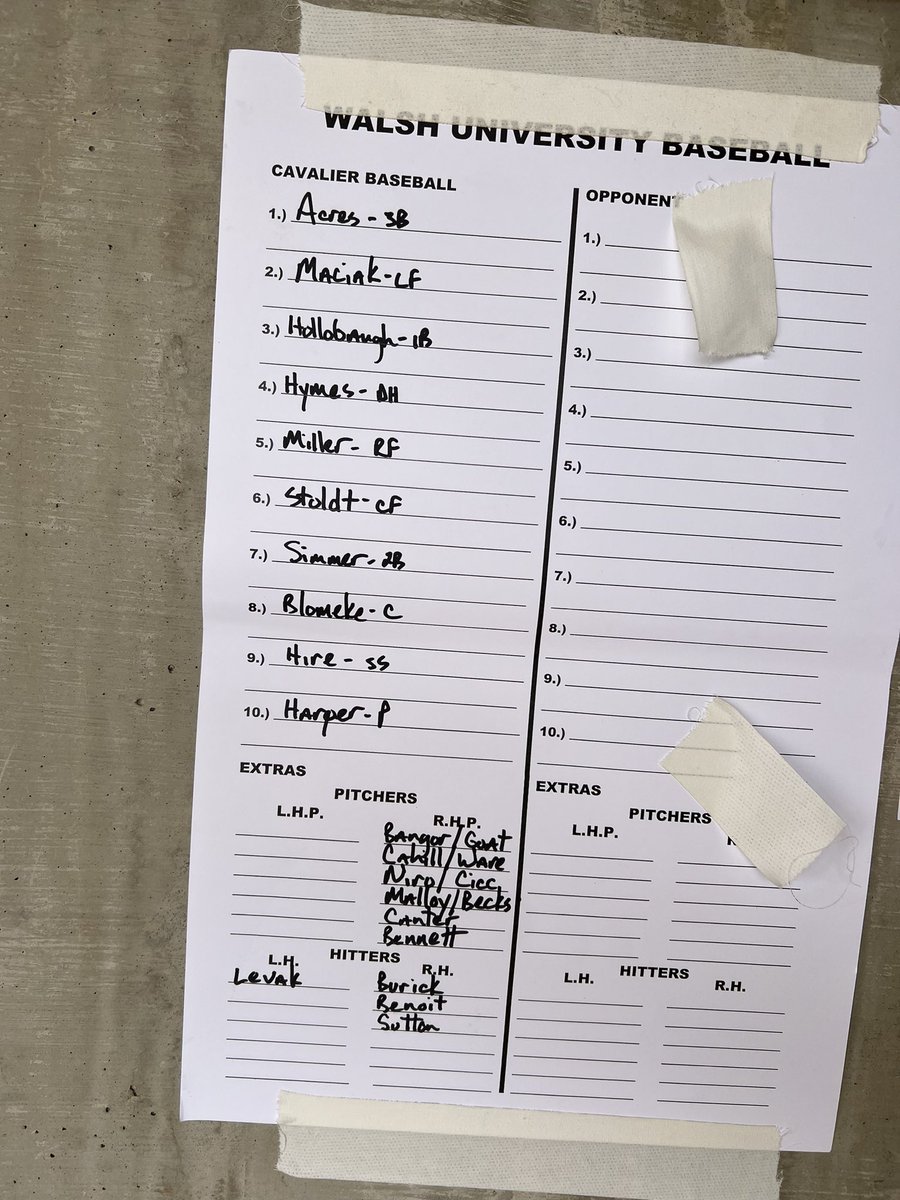 WALSH UNIVERSITY BASEBALL
CAVALIER BASEBALL
1.) Acres - 3B
2.) Maciak - LF
3.) Hollobaugh - 1B
4.) Hymes - DH
5.) Miller - RF
6.) Stoldt - CF
7.) Simmer - 2B
8.) Blomeke - C
9.) Hire - SS
10.) Harper - P
EXTRAS
PITCHERS
L.H.P. R.H.P.
Bangor / Goat
Cahill / Ware
Niro / Cicc
Malloy / Becks
Canter
Bennett
HITTERS
L.H. R.H.
Levak Burick
Benoit
Sutton
OPPONENT
1.)
2.)
3.)
4.)
5.)
6.)
7.)
8.)
9.)
10.)
EXTRAS
PITCHERS
L.H.P.
HITTERS
L.H. R.H.